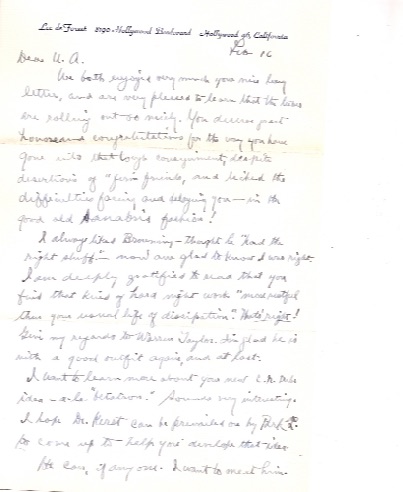 Lee de Forest 8190 Hollywood Boulevard Hollywood 46, California
Feb 16
Dear U. A.
We both enjoyed very much your nice long
letter, and are very pleased to learn that the tubes
are rolling out so nicely. You deserve great
honors and congratulations for the way you have
gone into that big assignment, despite
desertions of "firm friends, and licked the
difficulties facing and delaying you — in the
good old fashion!
I always liked Browning – thought he had the
right stuff – now am glad to know I was right.
I am deeply gratified to read that you
find that kind of hard night work "more restful
than your usual life of dissipation". That's right!
Give my regards to Warren Taylor. I'm glad he is
with a good outfit again, and at last.
I want to learn more about your new C.R. tube
idea – a-la "betatron." Sounds very interesting.
I hope Dr. Kerst can be
to come up to help you develop that idea
He can, if any one. I want to meet him.